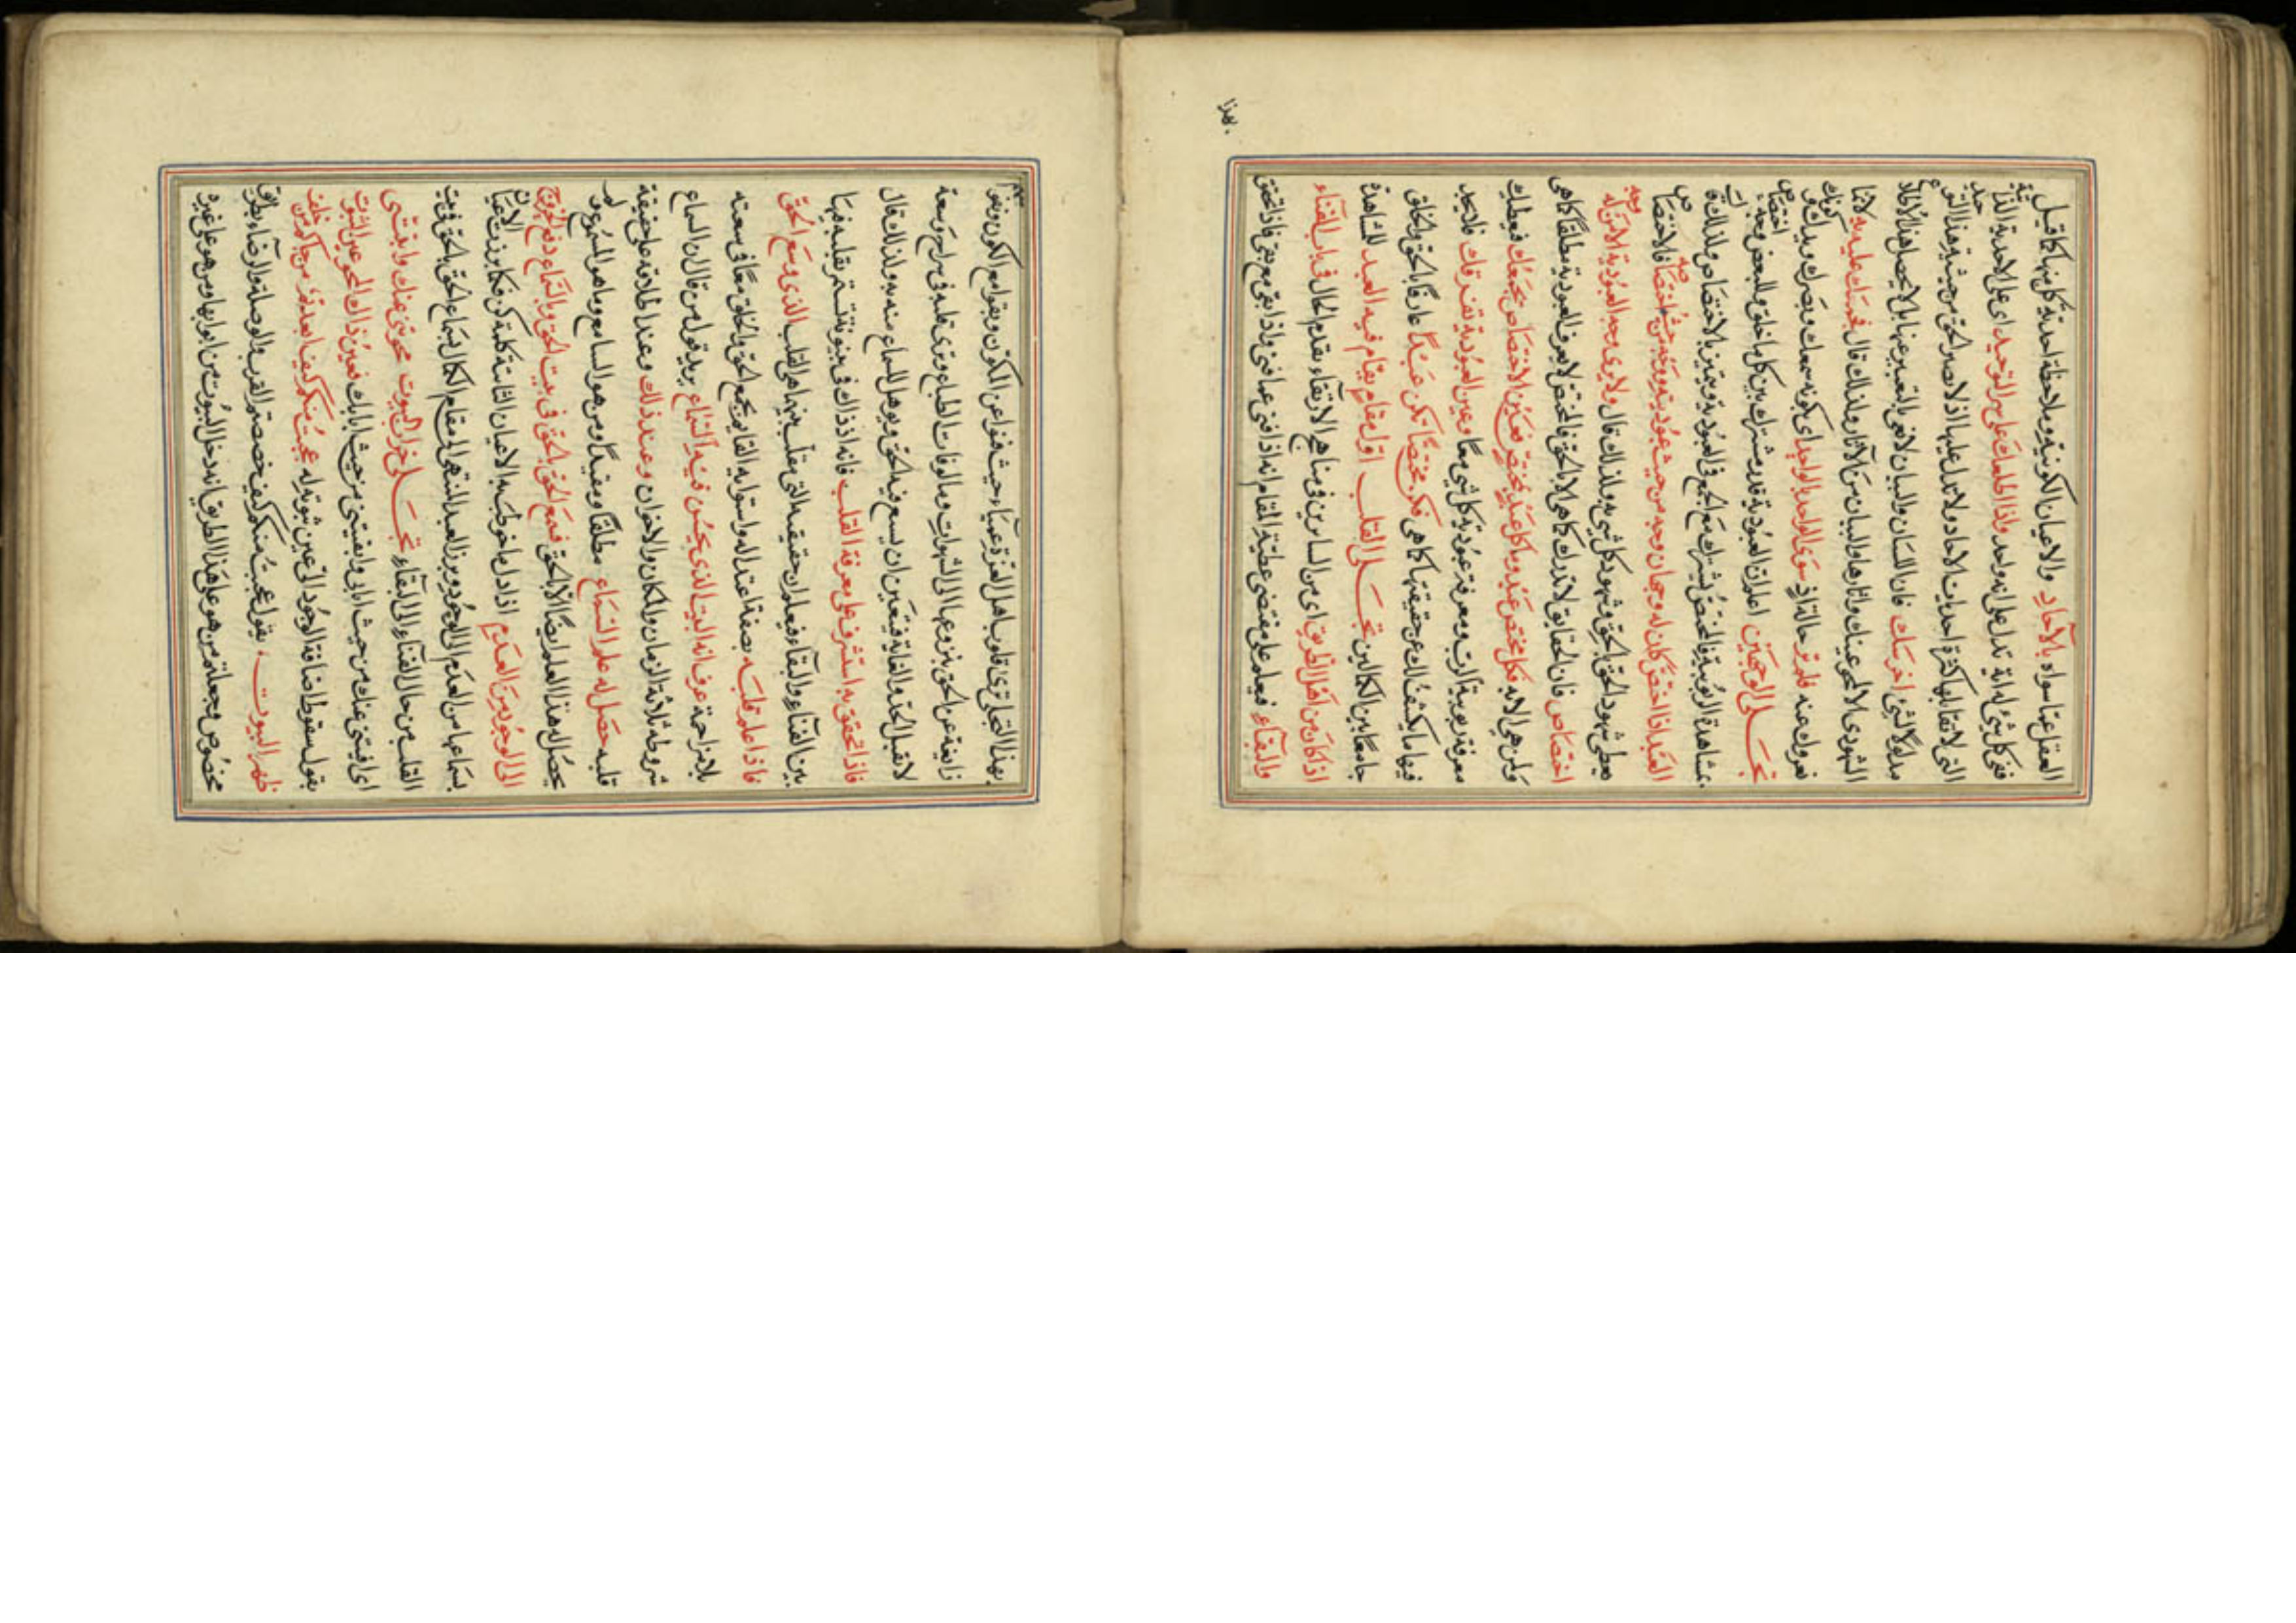 العقل عنها سواه بالآحاد والاعيان الكونية وملاحظة احدية كل منها كما قيل
ففى كل شئ له اية تدل على انه واحد واذا اطلعك على سر التوحيد اى على الاحدية الذاتية
التى لا تقابلها كثرة احديات الاحاد ولا تدل عليها اذ لا بصر الحق من حيثية هذا التوحيد
مدلولا لشئ اخرسك فان اللسان والبيان لا تفى بالتعبير عنها بل لا يحصل هذا الاطلاع
الشهودى الا بمحو عينك واثارها والبيان من الآثار ولذلك قال فرساك عليه به لانها
تعروك عنه فلم تر حالتئذ سوى الواحد بالواحد اى بكونه سمعك وبصرك ويدك لا بكونك
تجلى الوجهين اعلم ان العبودية قدر مشترك بين كل ما خلق وللبعض وجه اختصاص
بمشاهدة الربوبية فالمختص يشترك مع الجمع فى العبودية ويتميز بالاختصاص ولذلك قال
العبد اذا اختص كان له وجهان وجه من حيث عبوديته ووجه من حيث اختصاصه فالاختصاص
يعطى شهود الحق بالحق وشهود كل شئ به ولذلك قال ولا يرى وجه العبودية الا من له وجه
اختصاص فان الحقايق لا تدرك كما هى الا بالحق فالمختص لا يعرف العبودية مطلقا كما هى
ولمن هى الا به فكل مختص عبد وما كل عبد بمختص فعين الاختصاص تجمعك فيعطيك
معرفة ربوبية الرب ومعرفة عبودية كل شئ معا وعين العبودية تفرقك فلا تجد
فيها ما يكشف لك عن حقيقتها كما هى فكن مختصا تكن عبدا عارفا بالحق والخلق
جامعا بين الكمالين تجلى القلب اول مقام يقام فيه العبد للمشاهدة
اذ كان من اهل الطريق اى من السايرين فى مناهج الارتقاء بقدم الحال فى باب الفناء
والبقاء فيعلم على مقتضى عطية المقام انه اذا فنى عما فنى واذا بقى مع بقى فالتحقق
بهذا
بهذا التجلى ترى قلوب اهل العزة عمياء حيث فنوا عن الكون وبقوا مع الكون
زايغة عن الحق بنزوعها الى الشهوات ومالوفات الطباع وترى قلبه فى سراح وسعة
لا تقبل الحد والغاية فيتعين ان يسع فيه الحق ويوهل للسماع منه به ولذلك قال
فاذا تحقق به استشرف على معرفة القلب فانه اذ ذاك فى بينونة تستمر تقلبه فيها
بين الفناء والبقاء فيعلم ان حقيقته التى تقلب بينهما هى القلب الذى وسع الحق
فاذا علم قلبه بصفة اعتداله واستوايه القايم بجمع الحق والخلق معا فى سعته
بلا مزاحمة عرف انه البيت الذى يحسن فيه السماع يريد قول من قال ان السماع
شروطه ثلاثة الزمان والمكان والاخوان وعند ذلك وعند اطلاقه على حقيقة
قلبه حصل له علم السماع مطلقا ومقيدا ومن هو السامع وما هو المسموع
يحصل له هذا العلم ايضا الا بالحق فسمع الحق بالحق فى بيت الحق وبالسماع وقع الخروج
الى الوجود من العدم اذ اول ما خوطب به الاعيان الثابتة كلمة كن فكما برزت الاعيان
بسماعها من العدم الى الوجود ويبرز العبد المنتهى الى مقام الكمال بسماع الحق بالحق فى بيت
القلب من حال الفناء الى البقاء تجلى خراب البيوت محو تنى عنك وابقيتنى
اى ابقيتنى عنك من حيث انا بى وابقيتنى من حيث انا بك فعين ذاك المحو عين الثبوت
بقول سقوط اضافة الوجود الى عين ثبوته له عجبت منكم كيف ابعدتم من جاءكم من خلف
ظهر البيوت يقول عجبت منكم كيف خصصتم القرب والوصلة والرضاء بطريق
مخصوص وجعلتم من هو على هذا الطريق انه دخل البيوت من ابوابها ومن هو على غيره